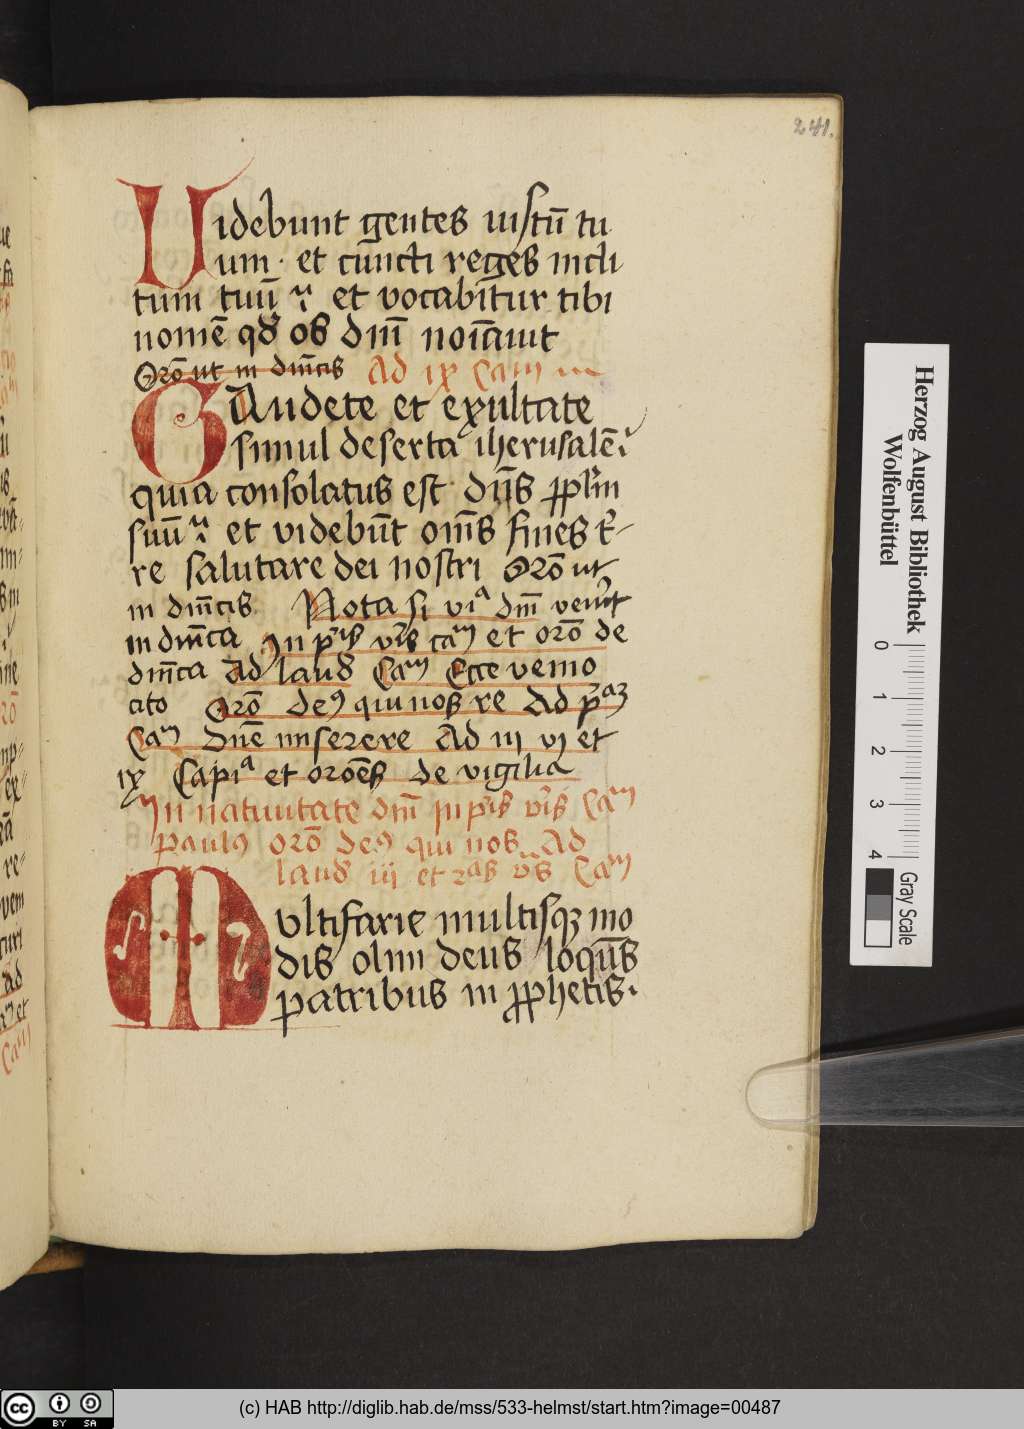 241.
Uidebunt gentes iustū tu
um · et cūncti reges incli
tum tuū et vocabitur tibi
nomē qd os dn̄i noīauit
Orō ut in dn̄icis Ad ix Cam
GAudete et exultate
simul deserta iherusalē
quia consolatus est dn̄s
suū et videbūt om̄s fines
re salutare dei nostri Orō ut
in dn̄icis Nota si
in dn̄ica et orō de
dn̄ica Ad laud Ecce venio
cito Orō qui nos re Ad
Dn̄e miserere Ad iij vj et
ix Capia et orōes de vigilia
In natiuitate dn̄i In
Paulus orō qui nos Ad
laud iij et
Multifarie multisqz mo
dis olim deus
patribus in
Herzog August Bibliothek
Wolfenbüttel
0 1 2 3 4
Gray Scale
cc BY SA
(c) HAB http://diglib.hab.de/mss/533-helmst/start.htm?image=00487